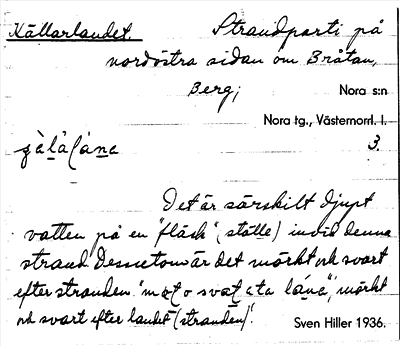 Källarlandet. Strandparti på
nordöstra sidan om Bråtan,
Berg; Nora s:n
Nora tg., Västernorrl. l.
3.
Det är särskilt djupt
vatten på en "fläck" (ställe) invid denna
strand. Dessutom är det mörkt och svart
efter stranden "
, mörkt
och svart efter landet (stranden)".
Sven Hiller 1936.